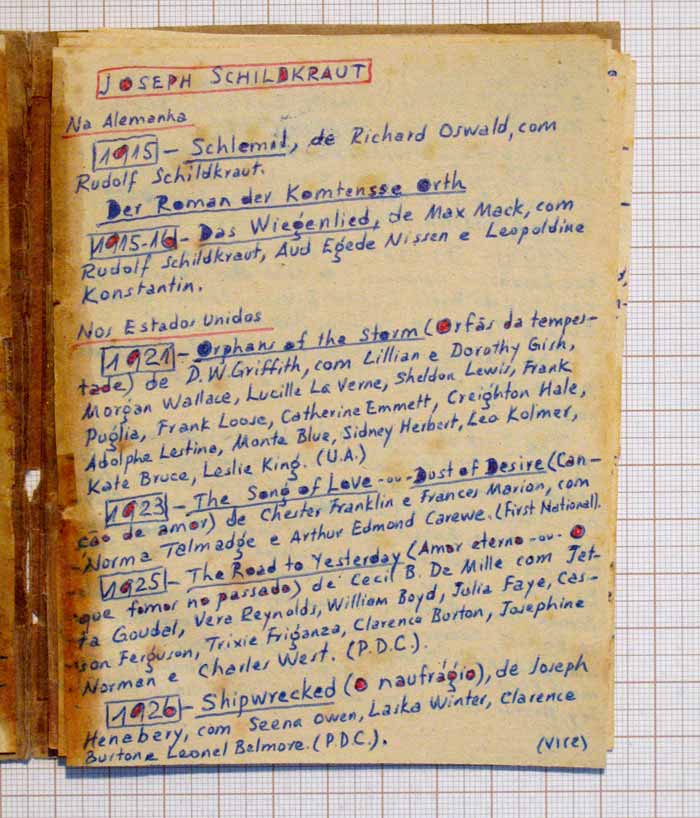 JOSEPH SCHILDKRAUT
Na Alemanha
1915 - Schlemil, de Richard Oswald, com
Rudolf Schildkraut.
Der Roman der Komtensse Orth
1915-16 - Das Wiegenlied, de Max Mack, com
Rudolf Schildkraut, Aud Egede Nissen e Leopoldine
Konstantin.
Nos Estados Unidos
1921 - Orphans of the Storm (Orfãs da tempes-
tade) de D.W. Griffith, com Lillian e Dorothy Gish,
Morgan Wallace, Lucille La Verne, Sheldon Lewis, Frank
Puglia, Frank Loose, Catherine Emmett, Creighton Hale,
Adolphe Lestina, Monte Blue, Sidney Herbert, Leo Kolmer,
Kate Bruce, Leslie King. (U.A.)
1923 - The Song of Love -ou- Dust of Desire (Can-
ção de amor) de Chester Franklin e Frances Marion, com
Norma Talmadge e Arthur Edmond Carewe. (First National).
1925 - The Road to Yesterday (Amor eterno -ou- O
que fomos no passado) de Cecil B. De Mille com Jet-
ta Goudal, Vera Reynolds, William Boyd, Julia Faye, Cas-
son Ferguson, Trixie Friganza, Clarence Burton, Josephine
Norman e Charles West. (P.D.C.).
1926 - Shipwrecked (O naufrágio), de Joseph
Henebery, com Seena Owen, Laska Winter, Clarence
Burton e Leonel Belmore. (P.D.C.).
(Vire)